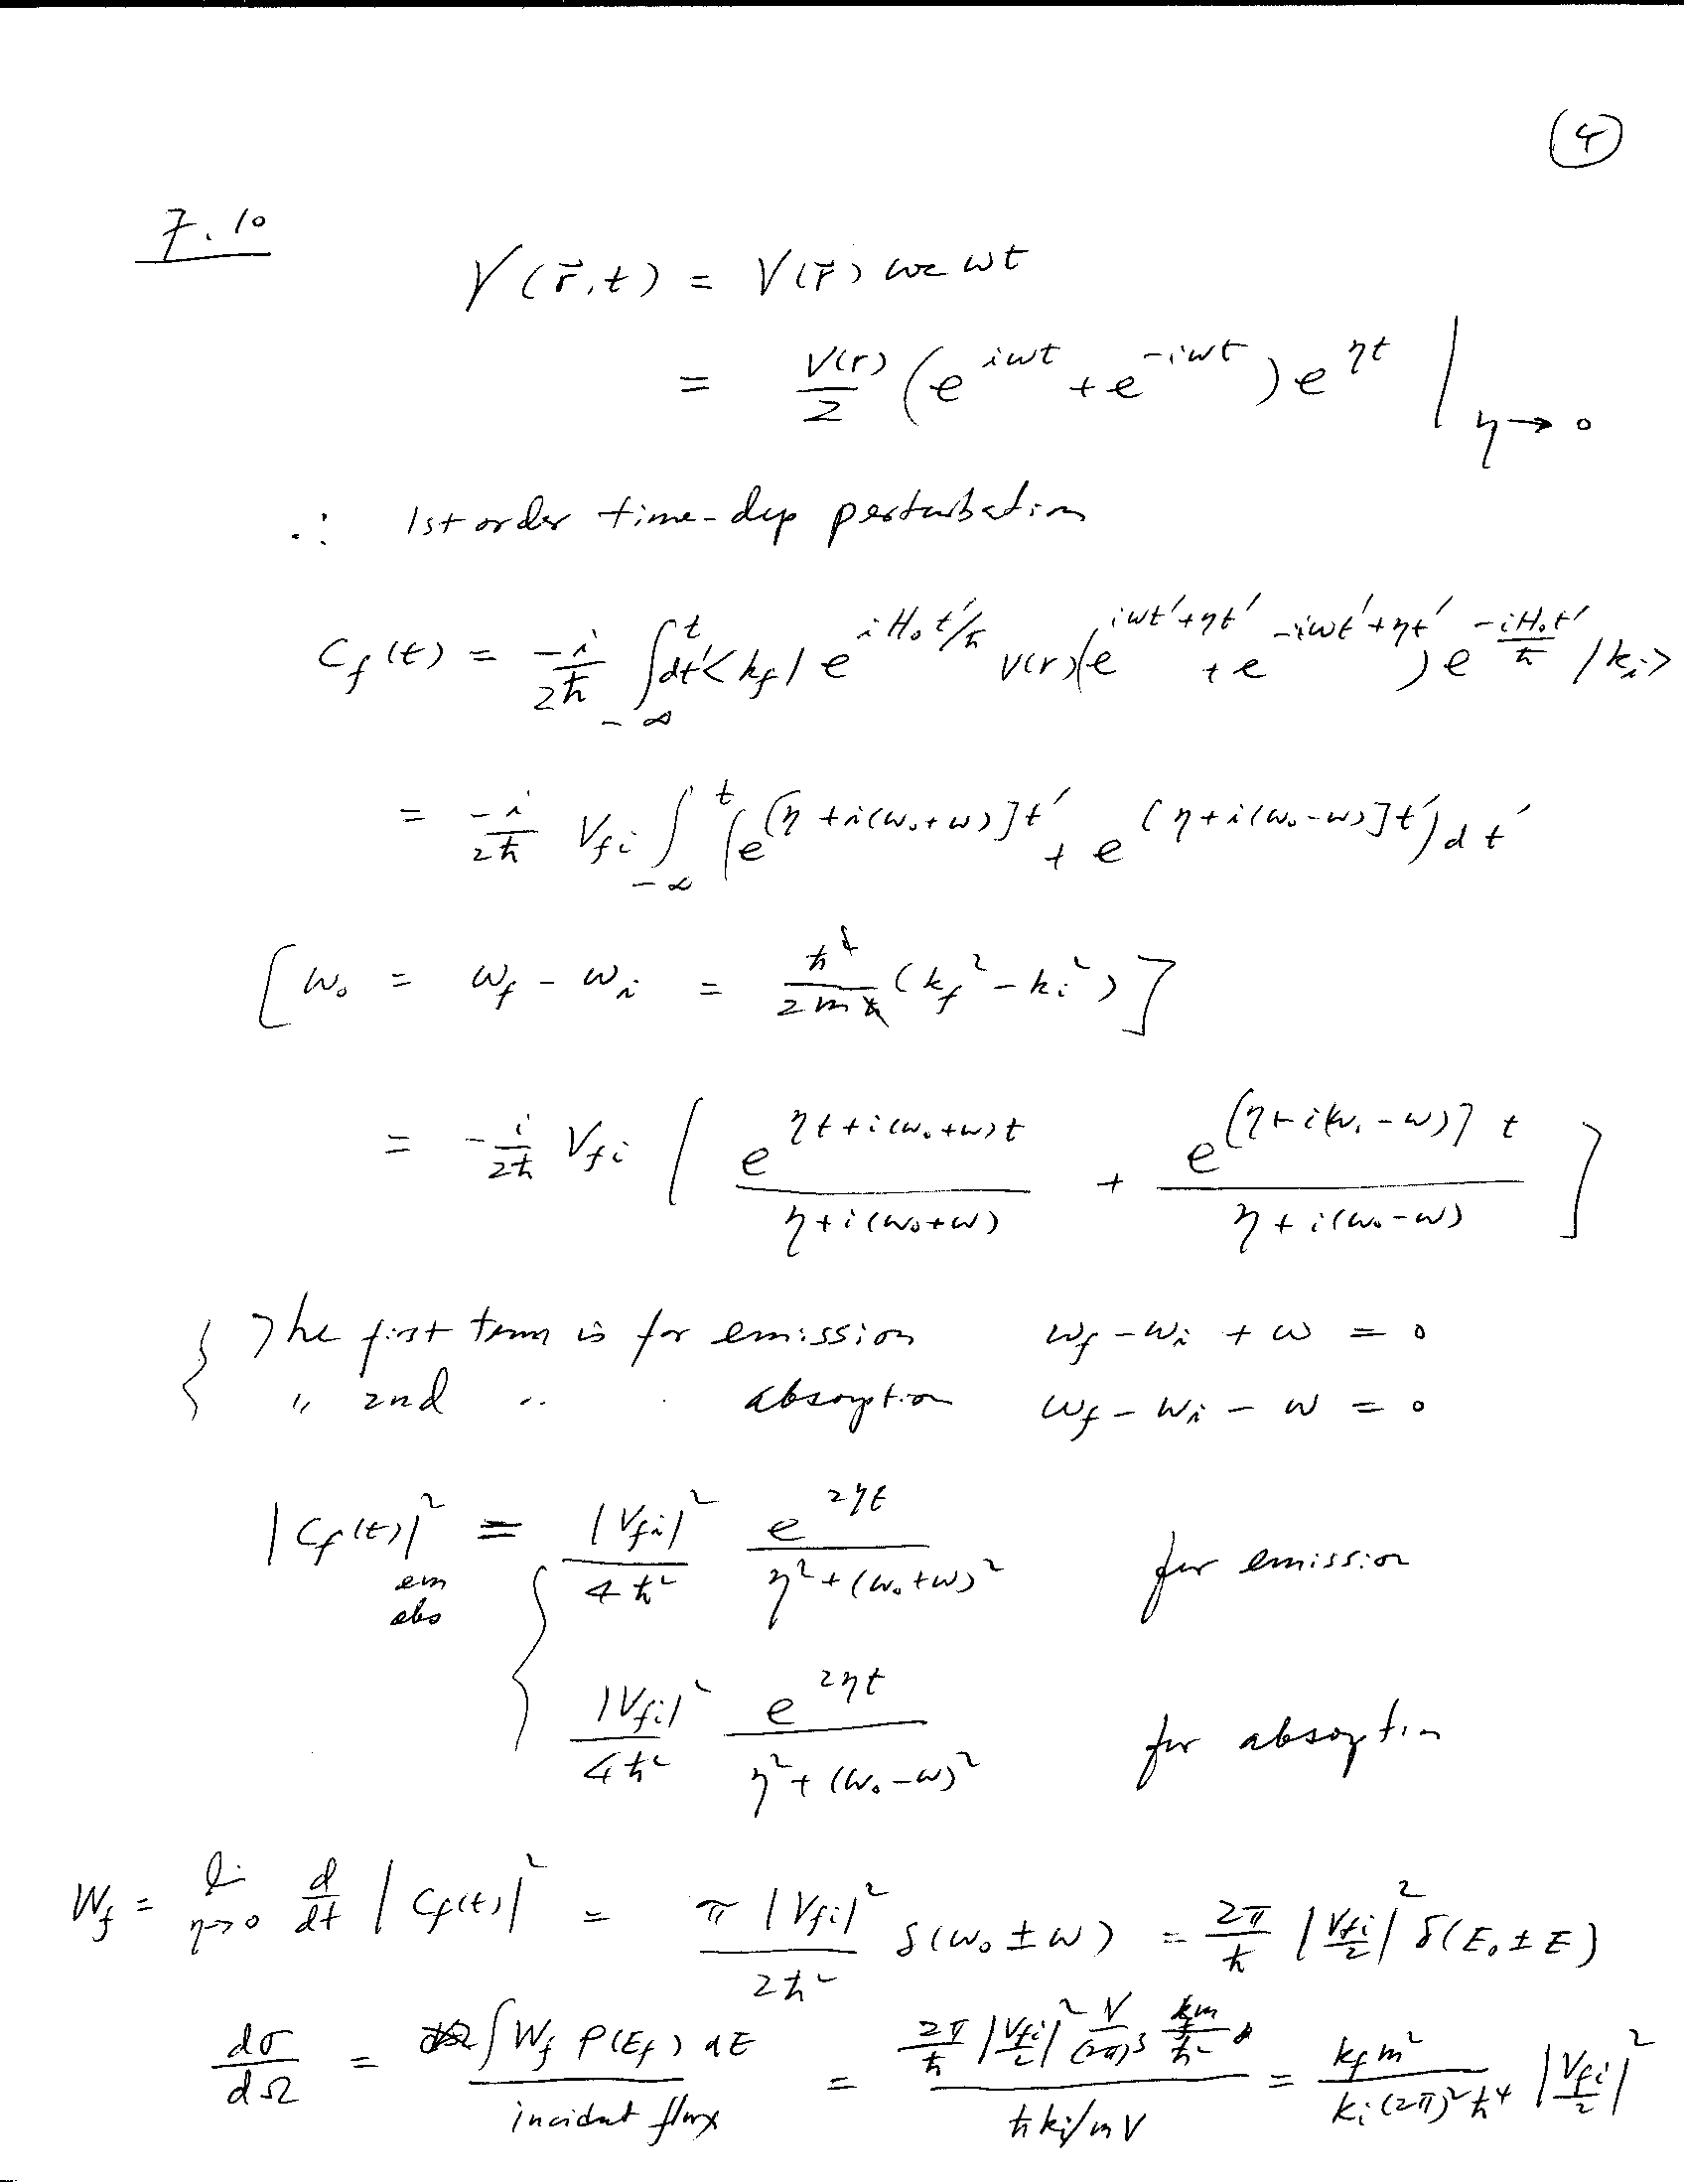 (4)
7.10
V(r⃗,t) = V(r⃗) cos ωt
= V(r)/2 (e^{iωt} + e^{-iωt}) e^{ηt} |_{η→0}
∴ 1st order time-dep perturbation
C_f(t) = -i/2ħ ∫_{-∞}^{t} dt' <k_f| e^{iH₀t'/ħ} V(r)(e^{iωt'+ηt'} + e^{-iωt'+ηt'}) e^{-iH₀t'/ħ} |k_i>
= -i/2ħ V_{fi} ∫_{-∞}^{t} (e^{[η+i(ω₀+ω)]t'} + e^{[η+i(ω₀-ω)]t'}) dt'
[ω₀ = ω_f - ω_i = ħ/2m (k_f² - k_i²)]
= -i/2ħ V_{fi} [ e^{ηt+i(ω₀+ω)t} / η+i(ω₀+ω) + e^{[η+i(ω₀-ω)]t} / η+i(ω₀-ω) ]
{ The first term is for emission ω_f - ω_i + ω = 0
" 2nd " " absorption ω_f - ω_i - ω = 0
|C_f(t)|²_{em abs} = { |V_{fi}|²/4ħ² e^{2ηt} / η²+(ω₀+ω)² for emission
|V_{fi}|²/4ħ² e^{2ηt} / η²+(ω₀-ω)² for absorption
W_f = lim_{η→0} d/dt |C_f(t)|² = π|V_{fi}|²/2ħ² δ(ω₀±ω) = 2π/ħ |V_{fi}/2|² δ(E₀±E)
dσ/dΩ = ∫W_f ρ(E_f) dE / incident flux = 2π/ħ |V_{fi}/2|² V/(2π)³ k_f m/ħ² / ħk_i/mV = k_f m²/k_i(2π)²ħ⁴ |V_{fi}/2|²